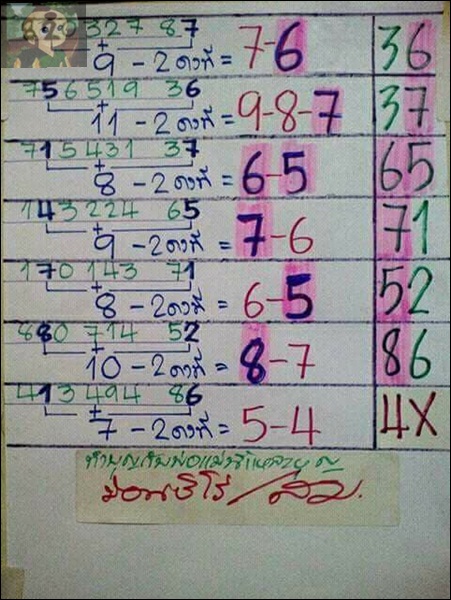 327 87
+
9 - 2 คงที่ = 7-6 36
756 519 36
+
11 - 2 คงที่ = 9-8-7 37
715 431 37
+
8 - 2 คงที่ = 6-5 65
143 224 65
+
9 - 2 คงที่ = 7-6 71
170 143 71
+
8 - 2 คงที่ = 6-5 52
880 714 52
+
10 - 2 คงที่ = 8-7 86
413 494 86
+
7 - 2 คงที่ = 5-4 4X